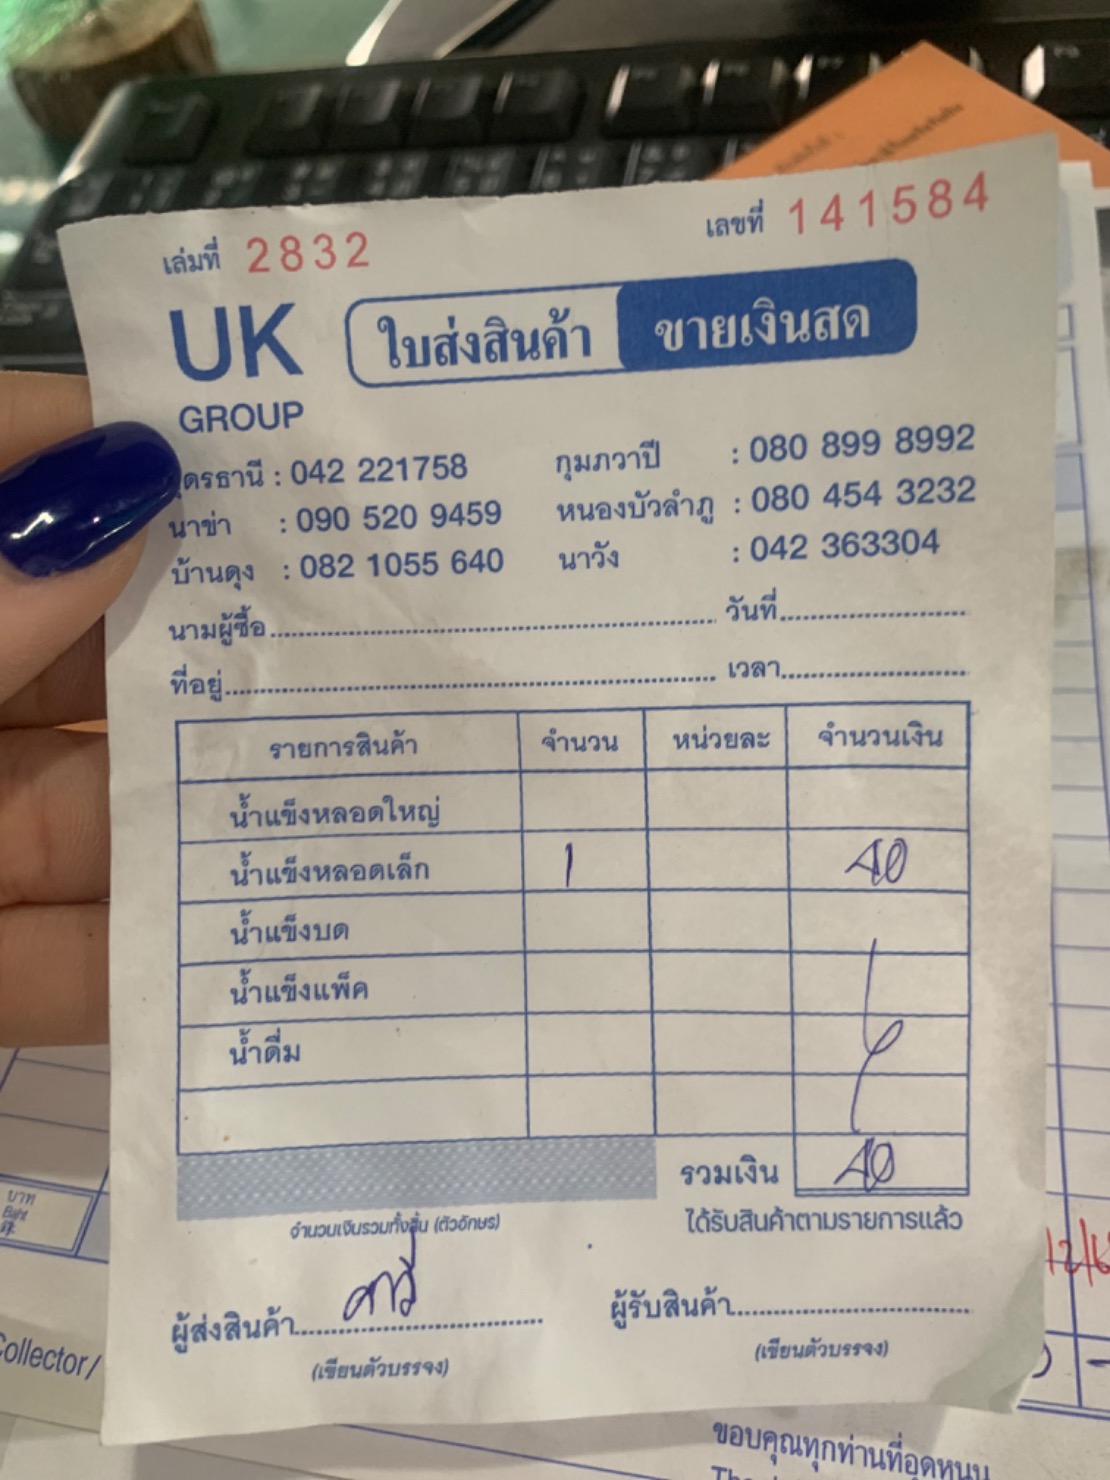 เล่มที่ 2832 เลขที่ 141584
UK GROUP
ใบส่งสินค้า ขายเงินสด
ุดรธานี : 042 221758 กุมภวาปี : 080 899 8992
นาข่า : 090 520 9459 หนองบัวลำภู : 080 454 3232
บ้านดุง : 082 1055 640 นาวัง : 042 363304
นามผู้ซื้อ วันที่
ที่อยู่ เวลา
รายการสินค้า จำนวน หน่วยละ จำนวนเงิน
น้ำแข็งหลอดใหญ่
น้ำแข็งหลอดเล็ก 1 40
น้ำแข็งบด
น้ำแข็งแพ็ค
น้ำดื่ม
รวมเงิน 40
จำนวนเงินรวมทั้งสิ้น (ตัวอักษร) ได้รับสินค้าตามรายการแล้ว
ผู้ส่งสินค้า ผู้รับสินค้า
(เขียนตัวบรรจง) (เขียนตัวบรรจง)
บาท
Baht
Collector/
ขอบคุณทุกท่านที่อุดหนุน